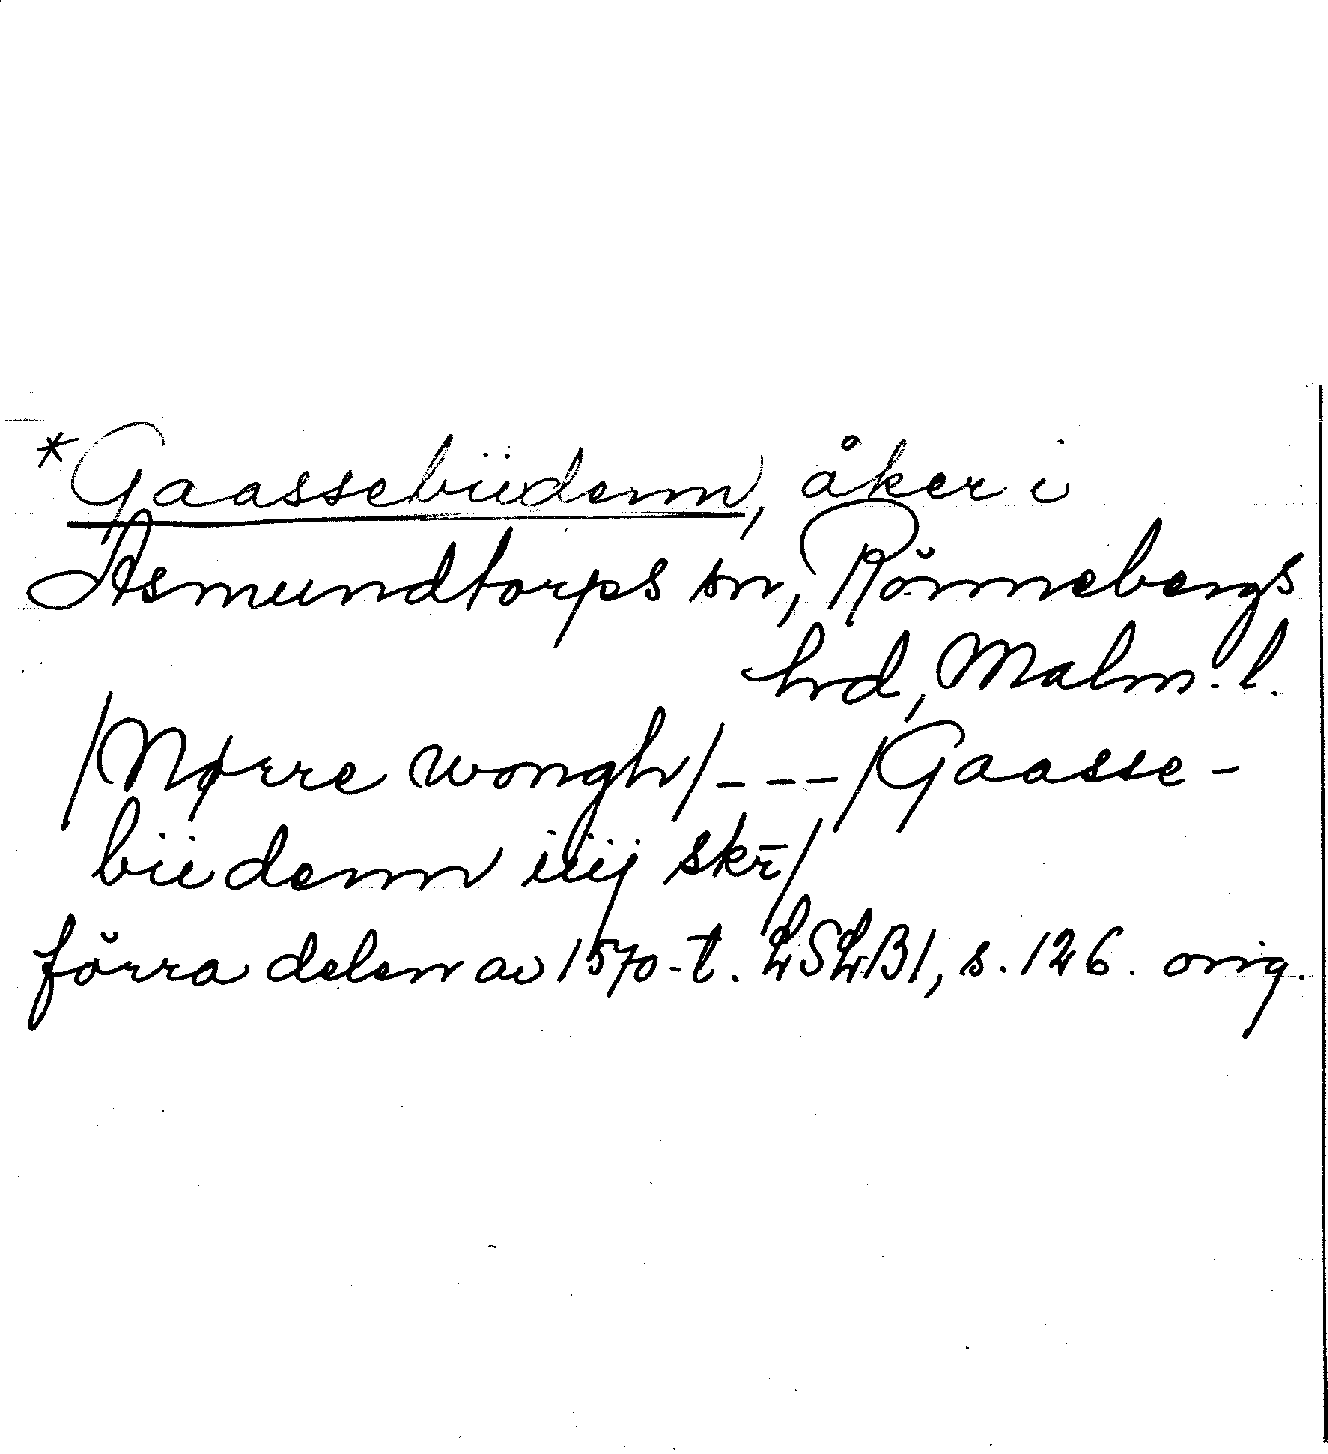 *Gaassebiidenn, åker i
Asmundtorps sn, Rönnebergs
hrd, Malm. l.
/Nørre wongh/ --- /Gaasse-
biidenn iiij skr̄/
förra delen av 1570-t. LSLB1, s. 126. orig.